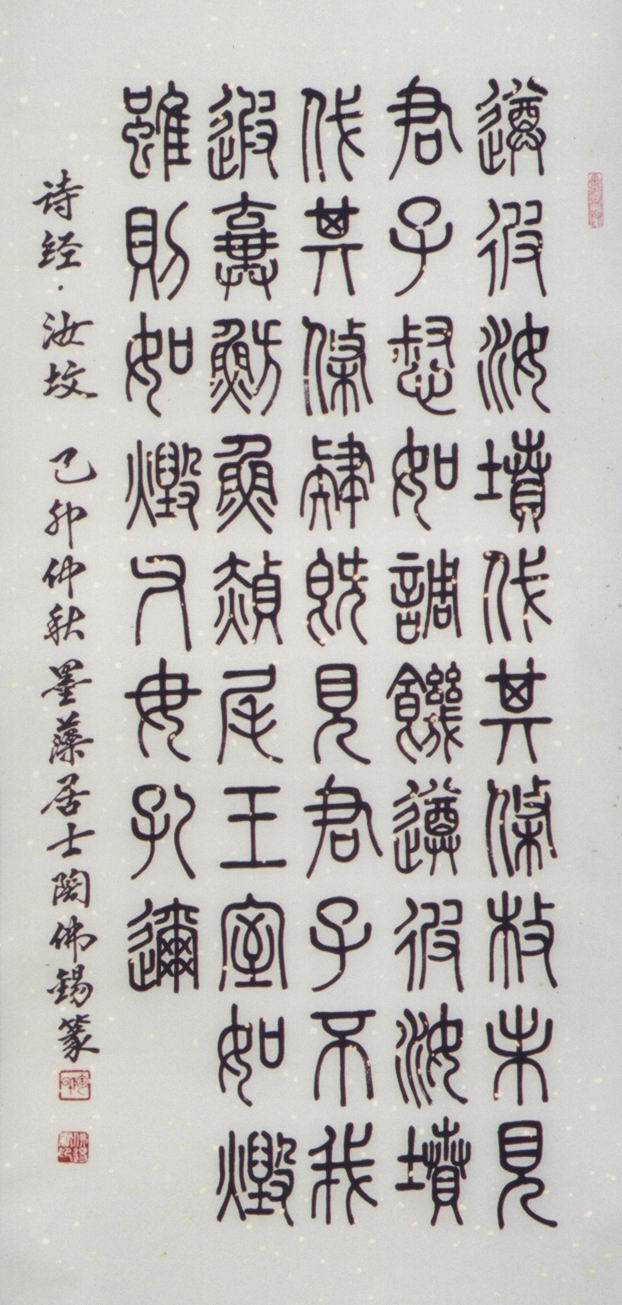 遵彼汝墳伐其條枚未見
君子惄如調饑遵彼汝墳
伐其條肄既見君子不我
遐棄魴魚赬尾王室如燬
雖則如燬父母孔邇
诗经·汝坟 己卯仲秋墨藻居士陶佛锡篆